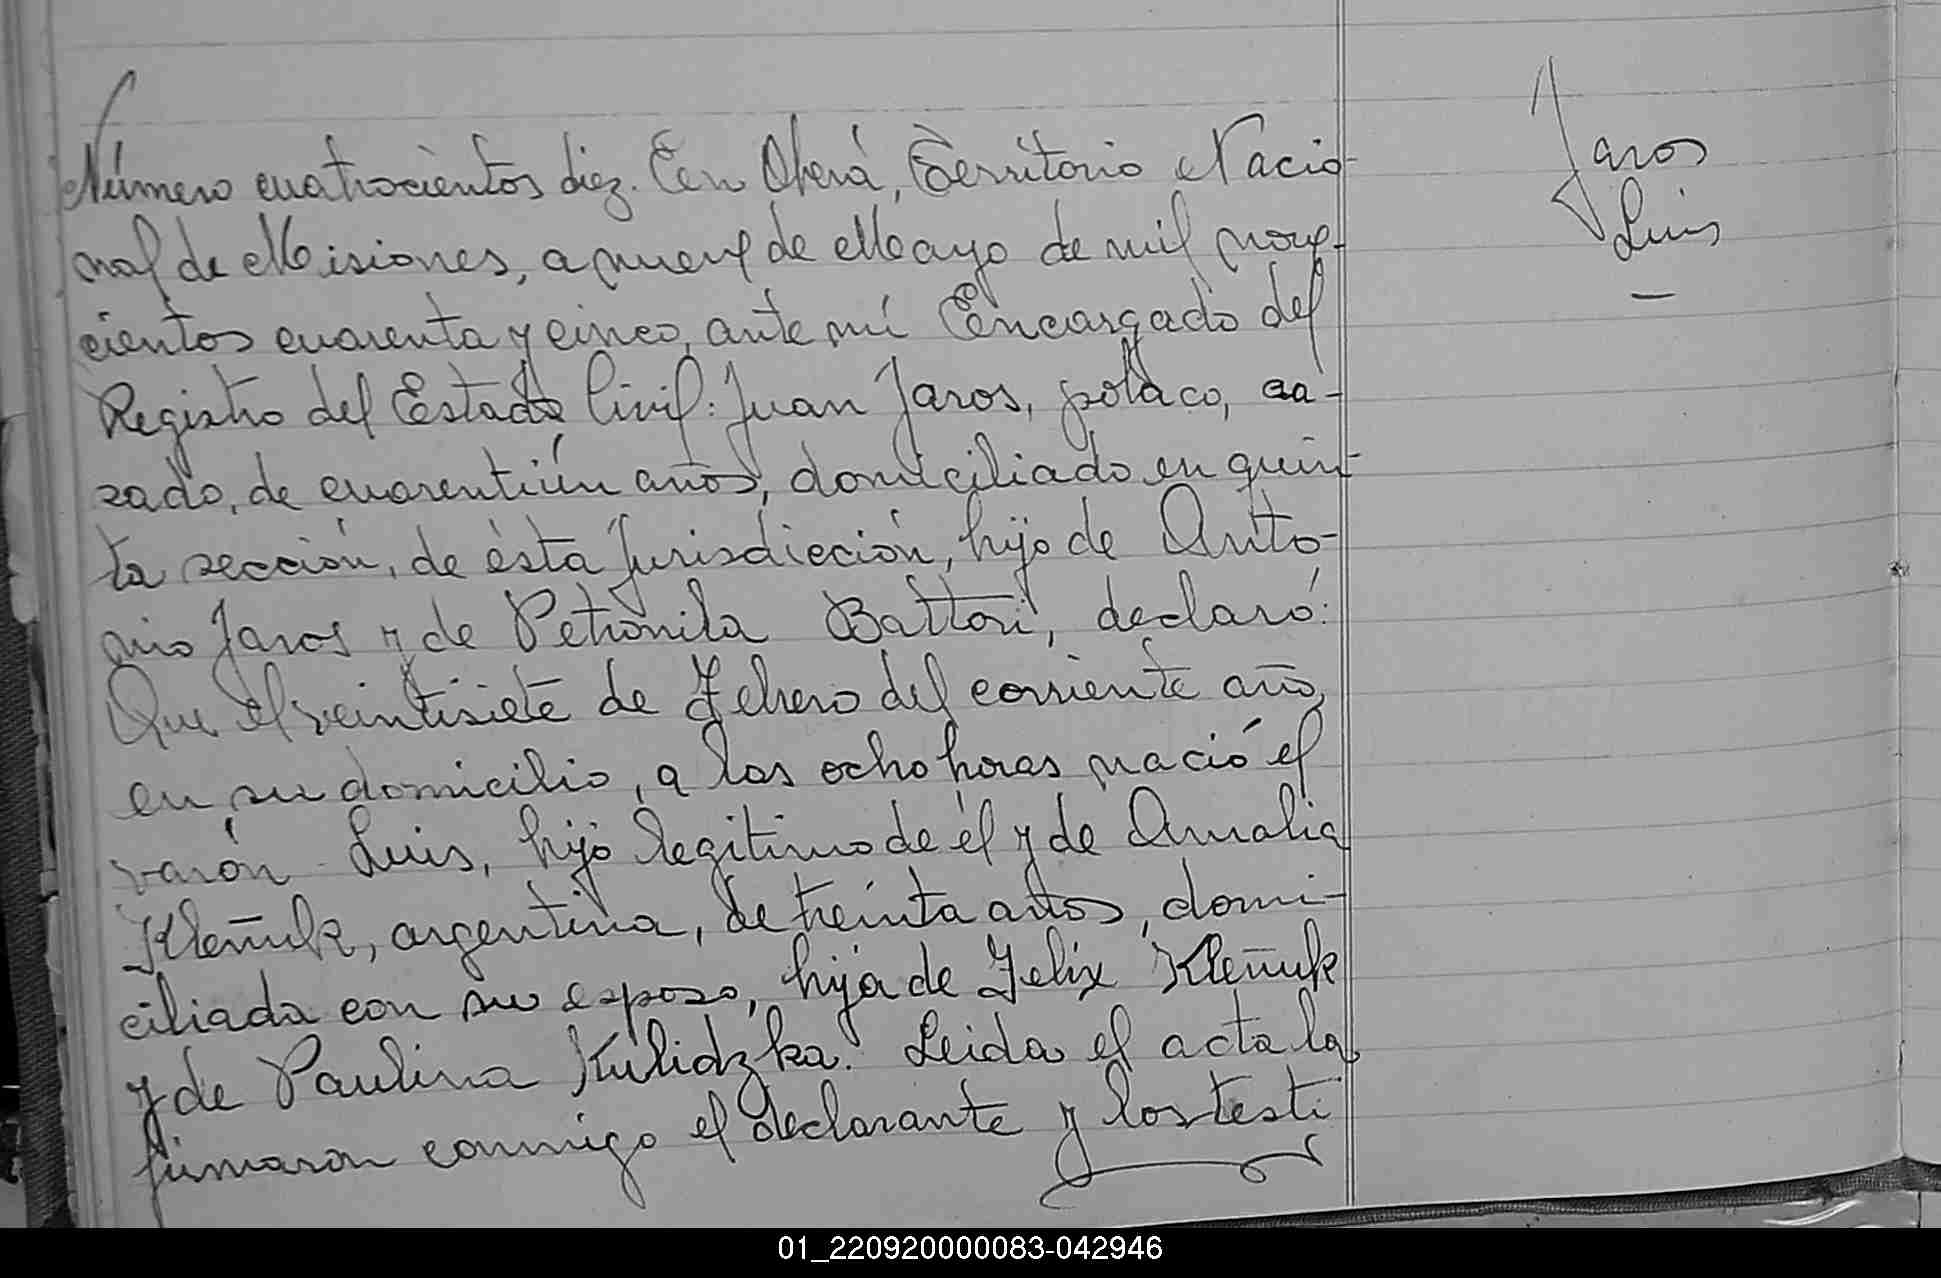 Número cuatrocientos diez. En Oberá, Territorio Nacio-
nal de Misiones, a nueve de Mayo de mil nove-
cientos cuarenta y cinco, ante mí Encargado del
Registro del Estado Civil: Juan Jaros, polaco, ca-
zado, de cuarentiún años, domiciliado en quin-
ta sección, de ésta Jurisdicción, hijo de Anto-
nio Jaros y de Petronila Battori, declaró:
Que el veintisiete de Febrero del corriente año,
en su domicilio, a las ocho horas nació el
varón Luis, hijo legitimo de él y de Amalia
Kleñuk, argentina, de treinta años, domi-
ciliada con su esposo, hija de Felix Kleñuk
y de Paulina Kulidzka. Leida el acta la
firmaron conmigo el declarante y los testi
Jaros
Luis
01_220920000083-042946